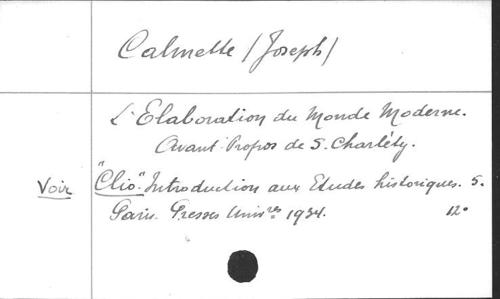 Calmette (Joseph)
L'Elaboration du Monde Moderne.
Avant-Propos de S. Charléty.
Voir "Clio". Introduction aux Etudes historiques. 5.
Paris. Presses Univ.res 1934. 12°